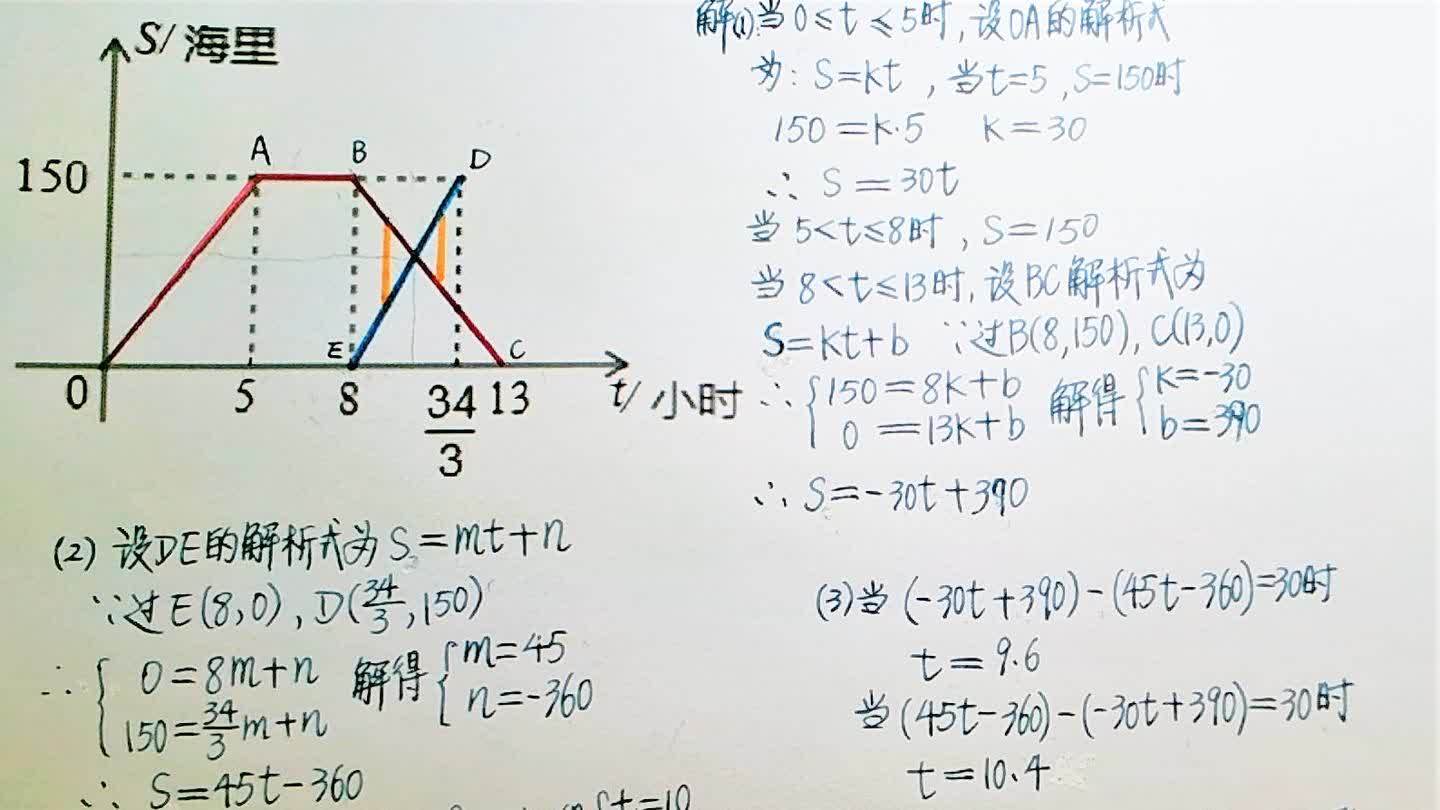 S/海里
A
B
D
150
E
C
0
5
8
34/3
13
t/小时
解(1):当0≤t≤5时,设OA的解析式
为:S=kt,当t=5,S=150时
150=k·5 k=30
∴ S=30t
当5<t≤8时,S=150
当8<t≤13时,设BC解析式为
S=kt+b ∵过B(8,150),C(13,0)
∴ { 150=8k+b 解得 { k=-30
0=13k+b b=390
∴ S=-30t+390
(2)设DE的解析式为S=mt+n
∵过E(8,0),D(34/3,150)
∴ { 0=8m+n 解得 { m=45
150=34/3m+n n=-360
∴ S=45t-360
t=10
(3)当(-30t+390)-(45t-360)=30时
t=9.6
当(45t-360)-(-30t+390)=30时
t=10.4